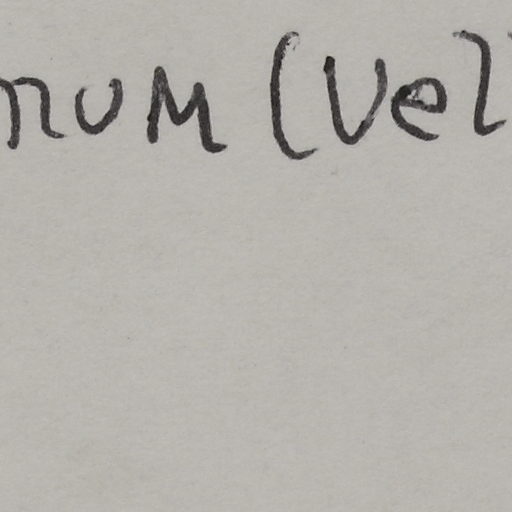 num (Vel